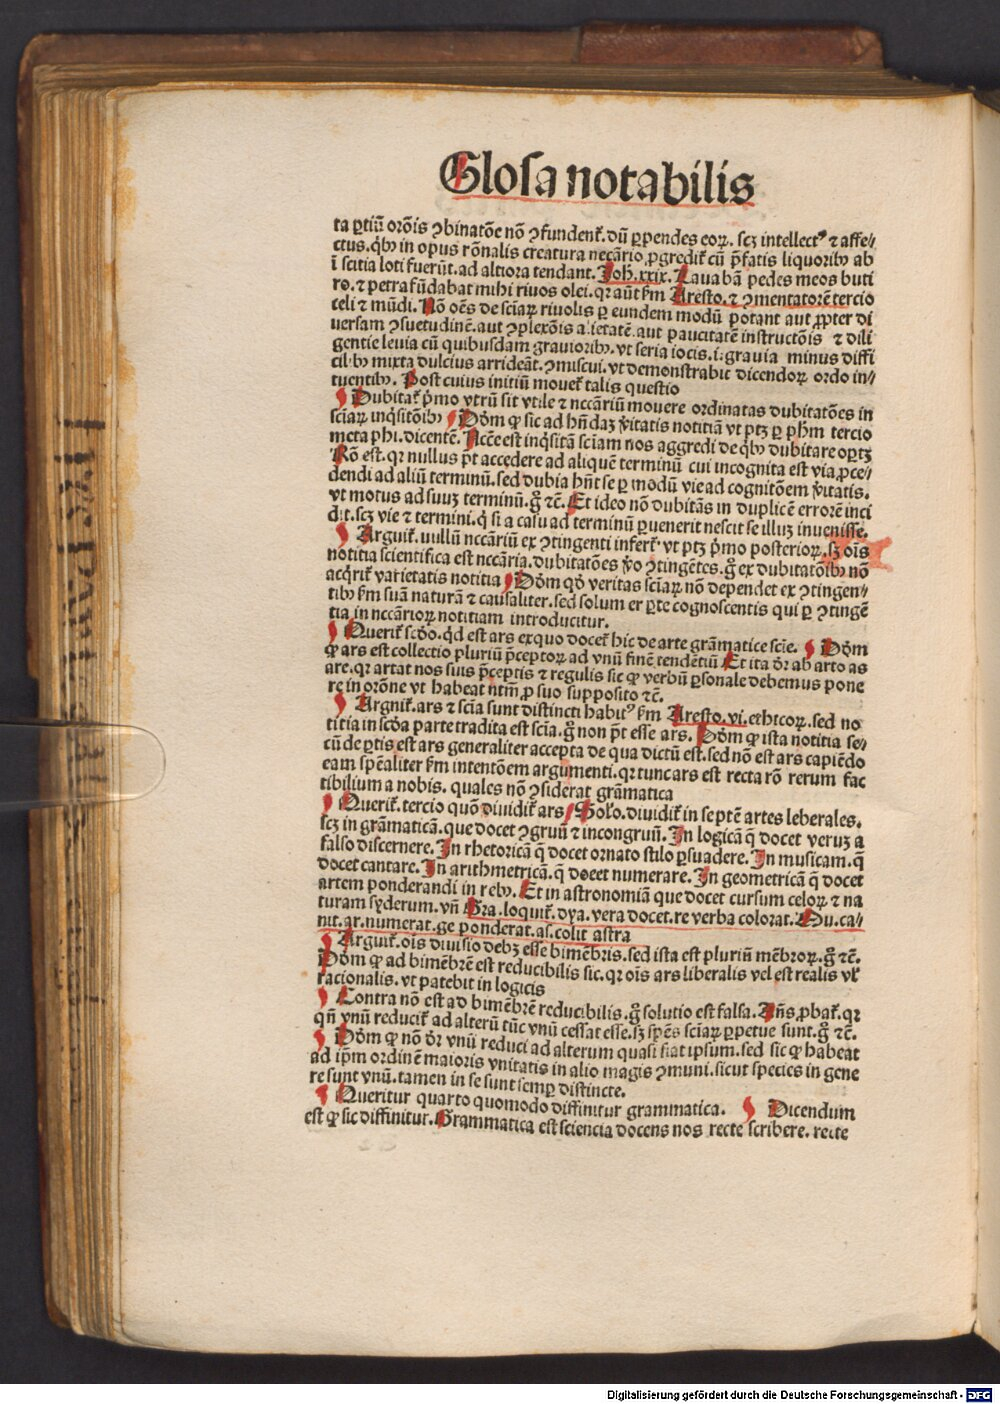 Glosa notabilis
ta ꝑtiū orōis ꝯbinatōe nō ꝯfundent̃. dū ꝑpendes eoꝝ. scꝫ intellectꝰ ⁊ affe/
ctus. q̄bꝫ in opus rōnalis creatura necārio ꝓgredit̃ cū p̄fatis liquoribꝫ ab
ī scitia loti fuerūt. ad altiora tendant. Joh. xxix. Lauabā pedes meos buti
ro. ⁊ petra fūdabat mihi riuos olei. qꝛ aūt ẜm Aresto. ⁊ ꝯmentatorē tercio
celi ⁊ mūdi. Nō oēs de sciaꝝ riuolis ꝑ eundem modū potant aut ꝓpter di
uersam ꝯsuetudinē. aut ꝯplexōis alietatē. aut paucitatē instructōis ⁊ dili
gentie leuia cū quibusdam grauioribꝫ. vt seria iocis. i. grauia minus diffi
cilibꝫ mixta dulcius arrideāt. ꝯmiscui. vt demonstrabit dicendoꝝ ordo in/
tuentibꝫ. Post cuius initiū mouet̃ talis questio
¶ Dubitat̃ p̄mo vtrū sit vtile ⁊ nccāriū mouere ordinatas dubitatōes in
sciaꝝ inq̄sitōibꝫ ¶ Dōm ꝙ sic ad hn̄daꝫ v̄itatis notitiā vt ptꝫ ꝑ pħm tercio
meta phi. dicentē. Nccē est inq̄sitā sciam nos aggredi de q̄bꝫ dubitare oꝑtꝫ
Rō est. qꝛ nullus p̄t accedere ad aliquē terminū cui incognita est via ꝓce/
dendi ad aliū terminū. sed dubia hn̄t se ꝑ modū vie ad cognitōem v̄itatis.
vt motus ad suuꝫ terminū. g̊ ⁊c̄. Et ideo nō dubitās in duplicē errorē inci
dit. scꝫ vie ⁊ termini. q̄ si a casu ad terminū ꝑuenerit nescit se illuꝫ inuenisse.
¶ Arguit̃. nullū nccāriū ex ꝯtingenti infert̃ vt ptꝫ p̄mo posterioꝝ. sꝫ oīs
notitia scientifica est nccāria. dubitatōes v̄o ꝯtingētes. g̊ ex dubitatōibꝫ nō
acq̄rit̃ varietatis notitia ¶ Dōm qd̄ veritas sciaꝝ nō dependet ex ꝯtingen/
tibꝫ ẜm suā naturā ⁊ causaliter. sed solum ex ꝑte cognoscentis qui ꝑ ꝯtingē
tia in nccārioꝝ notitiam introducitur.
¶ Querit̃ scd̄o. qd̄ est ars exquo docet̃ hic de arte grāmatice scīe. ¶ Dōm
ꝙ ars est collectio pluriū p̄ceptoꝝ ad vnū finē tendētiū Et ita dr̄ ab arto as
are. qꝛ artat nos suis p̄ceptis ⁊ regulis sic ꝙ verbū ꝑsonale debemus pone
re in orōne vt habeat ntm̄ ꝓ suo supposito ⁊c̄.
¶ Arguit̃. ars ⁊ scīa sunt distincti habitꝰ ẜm Aresto. vi. ethicoꝝ. sed no
titia in scd̄a parte tradita est scīa. g̊ non p̄t esse ars. Dōm ꝙ ista notitia se/
cū de ꝑtis est ars generaliter accepta de qua dictū est. sed nō est ars capiēdo
eam spēaliter ẜm intentōem argumenti. qꝛ tunc ars est recta rō rerum fac
tibilium a nobis. quales nō ꝯsiderat grāmatica
¶ Querit̃. tercio quō diuidit̃ ars ¶ Solo. diuidit̃ in septē artes leberales.
scꝫ in grāmaticā. que docet ꝯgruū ⁊ incongruū. In logicā q̄ docet veruꝫ a
falso discernere. In rhetoricā q̄ docet ornato stilo ꝑsuadere. In musicam. q̄
docet cantare. In arithmetricā. q̄ docet numerare. In geometricā q̄ docet
artem ponderandi in rebꝫ. Et in astronomiā que docet cursum celoꝝ ⁊ na
turam syderum. vn̄ Gra. loquit̃. dya. vera docet. re verba colorat. Mu. ca/
nit. ar. numerat. ge ponderat. as. colit astra
¶ Arguit̃. oīs diuisio debꝫ esse bimēbris. sed ista est pluriū mēbroꝝ. g̊ ⁊c̄.
Dōm ꝙ ad bimēbrē est reducibilis sic. qꝛ oīs ars liberalis vel est realis vł
racionalis. vt patebit in logicis
¶ Contra nō est ad bimēbrē reducibilis. g̊ solutio est falsa. Ans̄ ꝓbat̃. qꝛ
qn̄ vnū reducit̃ ad alterū tūc vnū cessat esse. sꝫ spēs sciaꝝ ꝑpetue sunt. g̊ ⁊c̄.
¶ Dōm ꝙ nō dr̄ vnū reduci ad alterum quasi fiat ipsum. sed sic ꝙ habeat
ad ip̄m ordinē maioris vnitatis in alio magis ꝯmuni. sicut species in gene
re sunt vnū. tamen in se sunt semꝑ distincte.
¶ Queritur quarto quomodo diffinitur grammatica. ¶ Dicendum
est ꝙ sic diffinitur. Grammatica est sciencia docens nos recte scribere. recte
Digitalisierung gefördert durch die Deutsche Forschungsgemeinschaft - DFG